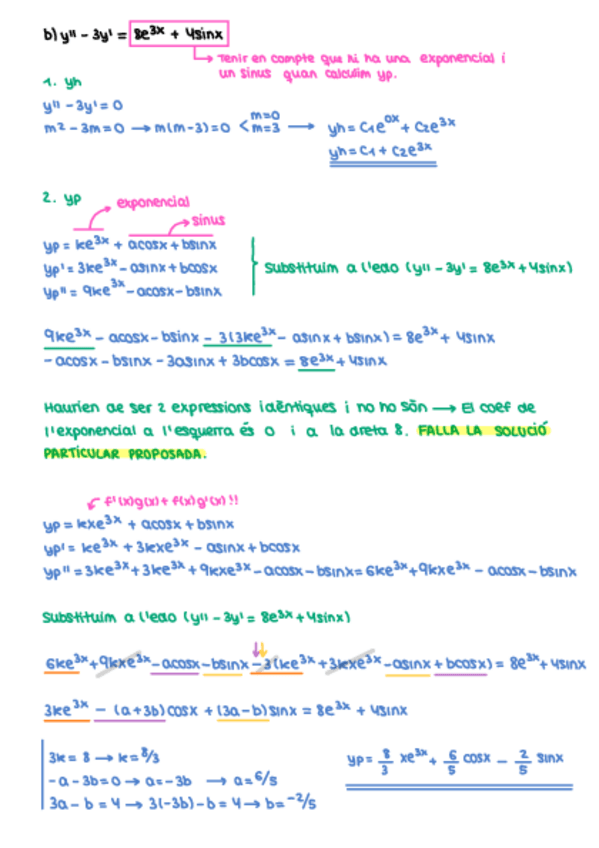 b) y'' - 3y' = 8e^3x + 4sinx
Tenir en compte que hi ha una exponencial i
un sinus quan calculim yp.
1. yh
y'' - 3y' = 0
m² - 3m = 0 → m(m-3) = 0 < m=0 m=3 → yh = C1e^0x + C2e^3x
yh = C1 + C2e^3x
2. yp
exponencial
sinus
yp = ke^3x + acosx + bsinx
yp' = 3ke^3x - asinx + bcosx
yp'' = 9ke^3x - acosx - bsinx
Substituim a l'edo (y'' - 3y' = 8e^3x + 4sinx)
9ke^3x - acosx - bsinx - 3(3ke^3x - asinx + bsinx) = 8e^3x + 4sinx
- acosx - bsinx - 3asinx + 3bcosx = 8e^3x + 4sinx
Haurien de ser 2 expressions idèntiques i no ho són → El coef de
l'exponencial a l'esquerra és 0 i a la dreta 8. FALLA LA SOLUCIÓ
PARTICULAR PROPOSADA.
f'(x)g(x) + f(x)g'(x)!!
yp = kxe^3x + acosx + bsinx
yp' = ke^3x + 3kxe^3x - asinx + bcosx
yp'' = 3ke^3x + 3ke^3x + 9kxe^3x - acosx - bsinx = 6ke^3x + 9kxe^3x - acosx - bsinx
Substituim a l'edo (y'' - 3y' = 8e^3x + 4sinx)
6ke^3x + 9kxe^3x - acosx - bsinx - 3(ke^3x + 3kxe^3x - asinx + bcosx) = 8e^3x + 4sinx
3ke^3x - (a+3b)cosx + (3a-b)sinx = 8e^3x + 4sinx
3k = 8 → k = 8/3
-a - 3b = 0 → a = -3b → a = 6/5
3a - b = 4 → 3(-3b) - b = 4 → b = -2/5
yp = 8/3 xe^3x + 6/5 cosx - 2/5 sinx